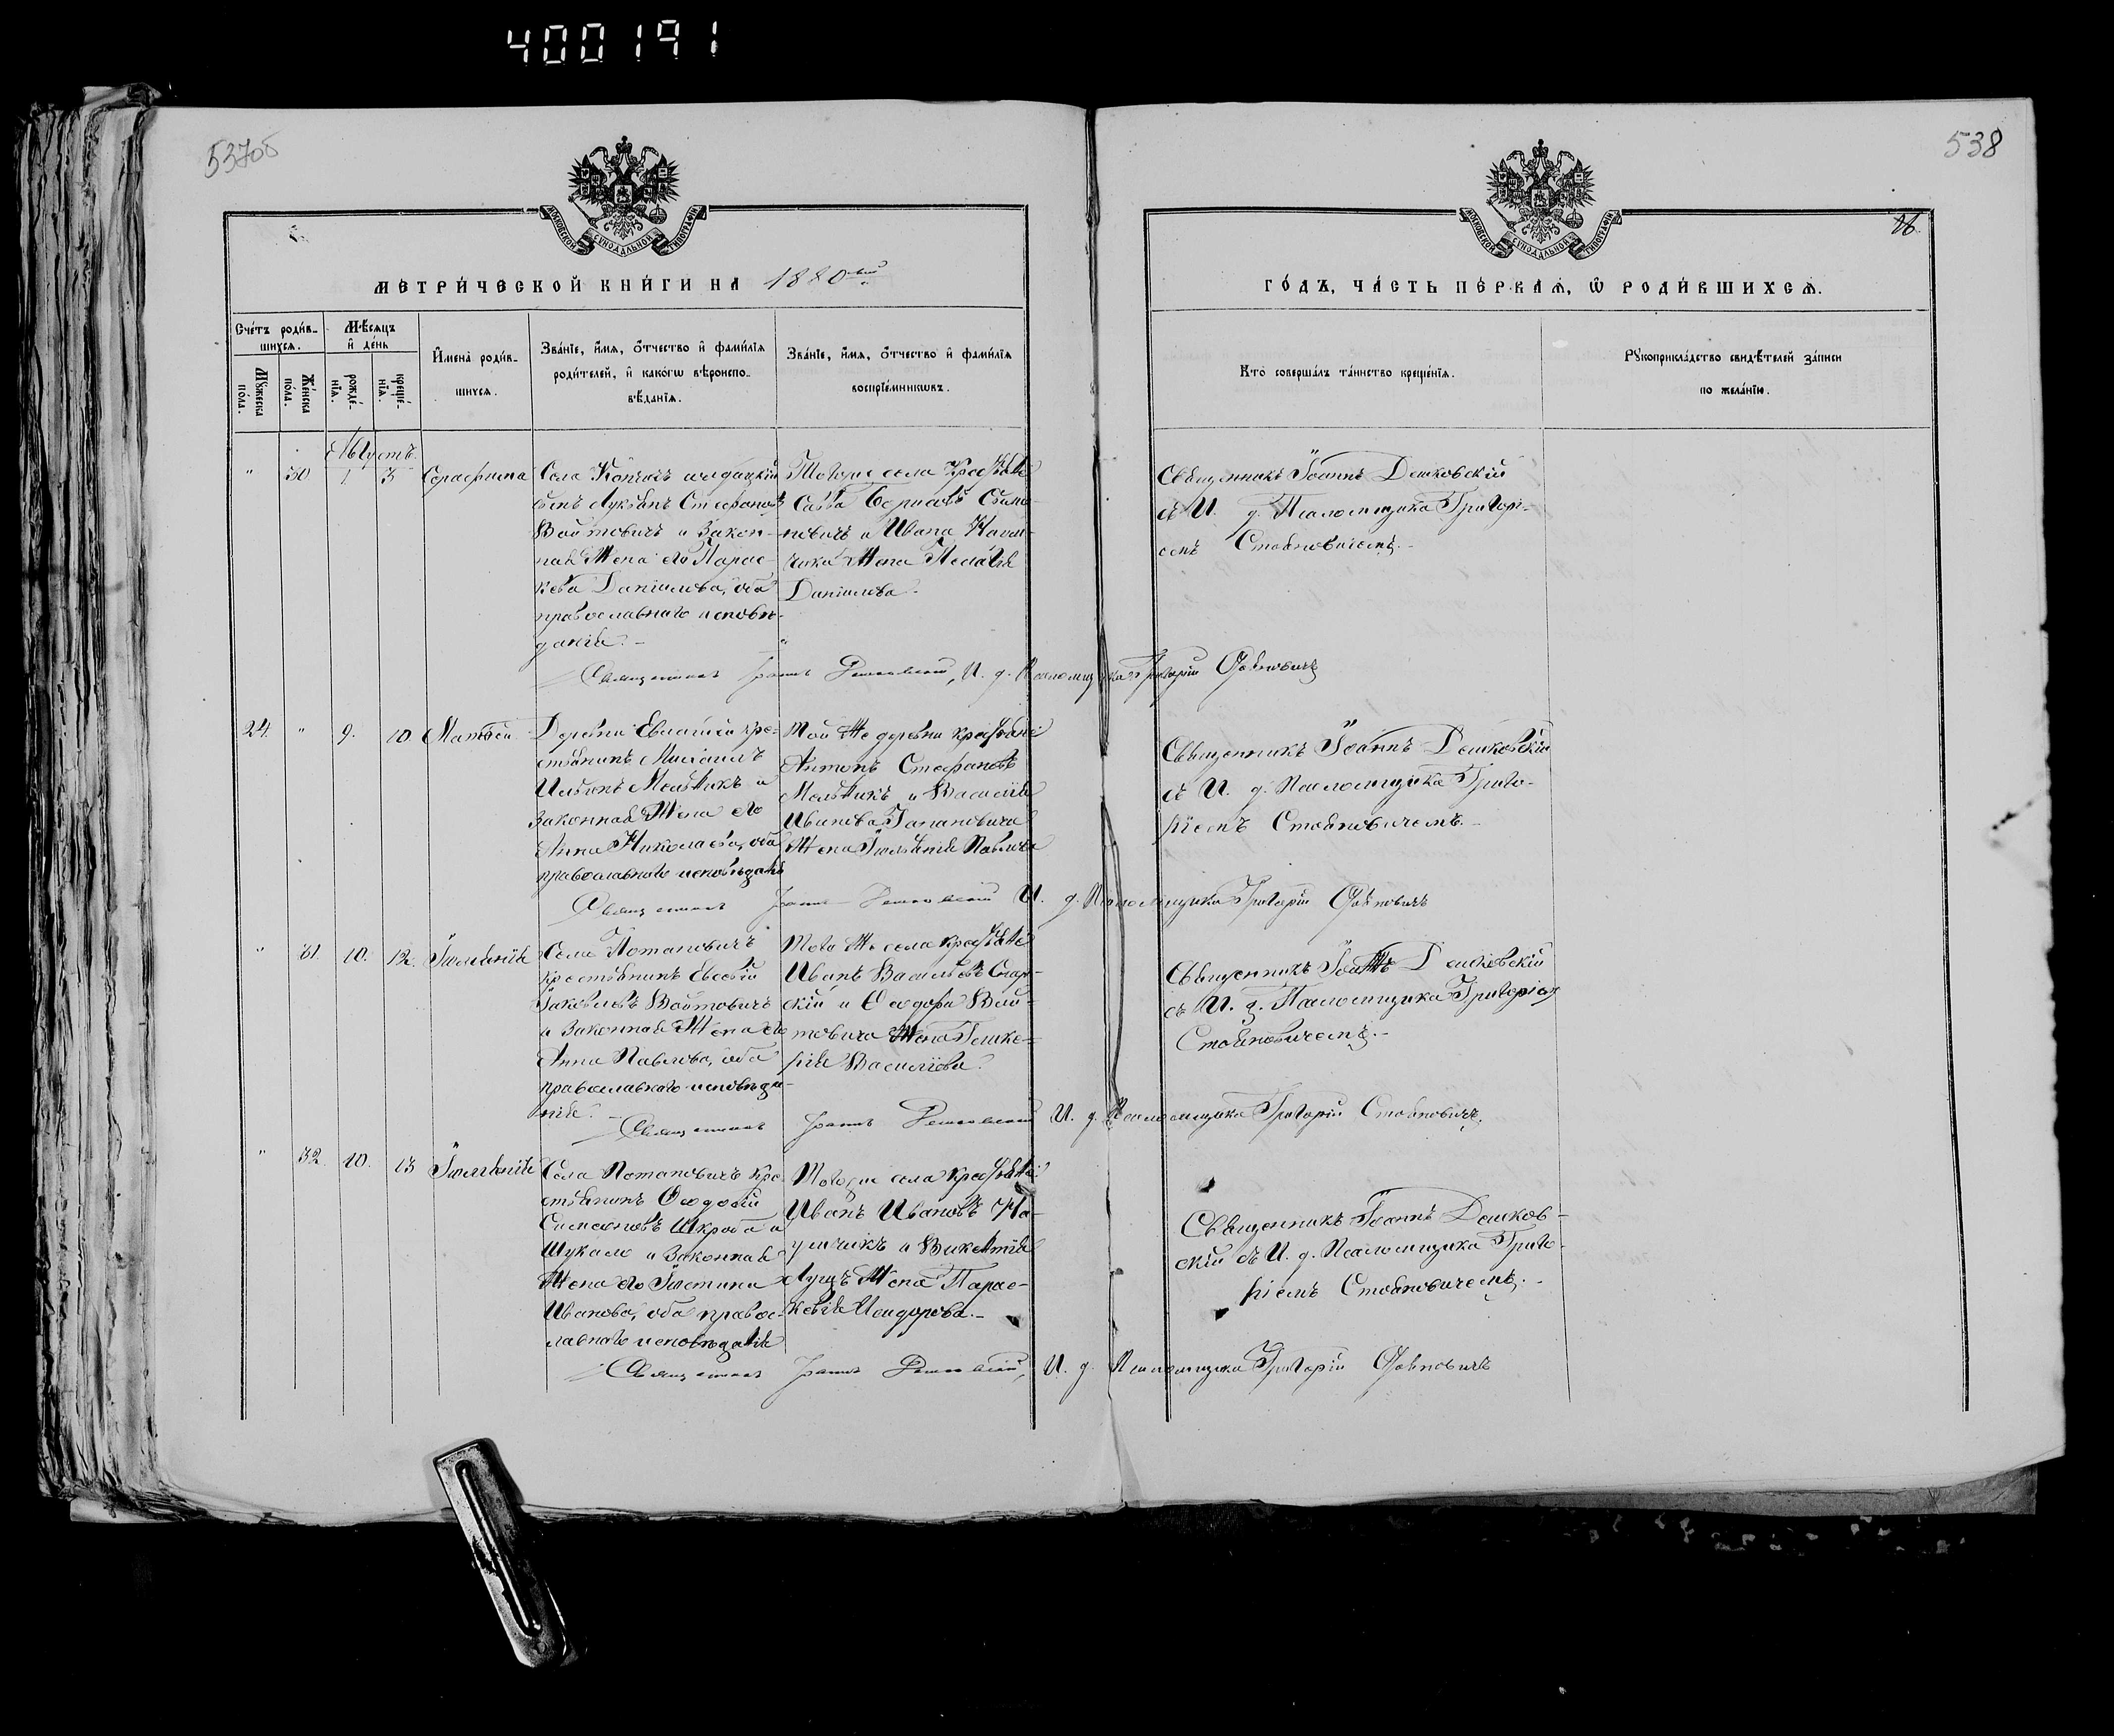 400191
537об
538
МОСКОВСКОЙ СУНОДАЛЬНОЙ ТИПОГРАФІИ
МОСКОВСКОЙ СУНОДАЛЬНОЙ ТИПОГРАФІИ
26.
МЕТРИ́ЧЕСКОЙ КНИ́ГИ НА 1880ый
ГО́ДЪ, ЧА́СТЬ ПЕ́РВАѦ, Ѡ҆ РОДИ́ВШИХСѦ.
Сче́тъ роди́в-
шихсѧ.
Мꙋ́жеска по́ла.
Же́нска по́ла.
Мѣ́сѧцъ
и҆ де́нь
рожде́-нїѧ.
креще́-нїѧ.
И҆мена̀ роди́в-
шихсѧ.
Зва́нїе, и҆́мѧ, ѻ҆́тчество и҆ фами́лїѧ
роди́телей, и҆ како́гѡ вѣроиспо-
вѣ́данїѧ.
Зва́нїе, и҆́мѧ, ѻ҆́тчество и҆ фами́лїѧ
воспрїе́мникѡвъ.
Кто̀ соверша́лъ та́инство креще́нїѧ.
Рꙋкоприкла́дство свидѣ́телей за́писи
по жела́нїю.
Августъ.
" 30 1. 3 Серафима
Села
сынъ Лукьянъ Стефановъ
Войтовичъ и закон-
ная жена его Парас-
кева Даніилова, оба
православнаго исповѣ-
данія. -
Тогоже села Крестьяне
Савва Борисовъ Стано-
новичъ и Ивана
жена Пелагія
Даніилова.
Священникъ Іоаннъ Дешковскій
съ И. д. Псаломщика Григорі-
емъ Стояновичемъ. -
Священникъ Іоаннъ Дешковскій, И. д. Псаломщика Григорій Стояновичъ
24. " 9. 10 Матвей
Деревни кре-
стьянинъ Михаилъ
Мельникъ и
законная жена его
Анна Николаева, оба
православнаго исповѣданія
Той же деревни крестьяне
Антонъ Стефановъ
Мельникъ и Василія
Иванова
жена Іюліанія Павлова
Священникъ Іоаннъ Дешковскій
съ И. д. Псаломщика Григо-
ріемъ Стояновичемъ. -
Священникъ Іоаннъ Дешковскій И. д. Псаломщика Григорій Стояновичъ
" 31. 10. 12. Іюліанія
Села Потаповичъ
крестьянинъ Евсевій
Іаковлевъ Войтовичъ
и законная жена его
Анна Павлова, оба
православнаго исповѣда-
нія. -
Того же села крестьяне
Иванъ Васильевъ
скій и Ѳеодора Вой-
товича жена Гликe-
рія Василіева.
Священникъ Іоаннъ Дешковскій
съ И. д. Псаломщика Григоріем
Стояновичемъ. -
Священникъ Іоаннъ Дешковскій И. д. Псаломщика Григорій Стояновичъ.
" 32. 10. 13 Іюліанія
Села Потаповичъ кре-
стьянинъ Ѳеодосій
Симеоновъ
и законная
жена его Іюстина
Иванова, оба правос-
лавнаго исповѣданія
Тогоже села крестьяне:
Иванъ Ивановъ
и Викентія
жена Парас-
кевія Исидорова. -
Священникъ Іоаннъ Дешков-
скій съ И. д. Псаломщика Григо-
ріемъ Стояновичемъ. -
Священникъ Іоаннъ Дешковскій, И. д. Псаломщика Григорій Стояновичъ